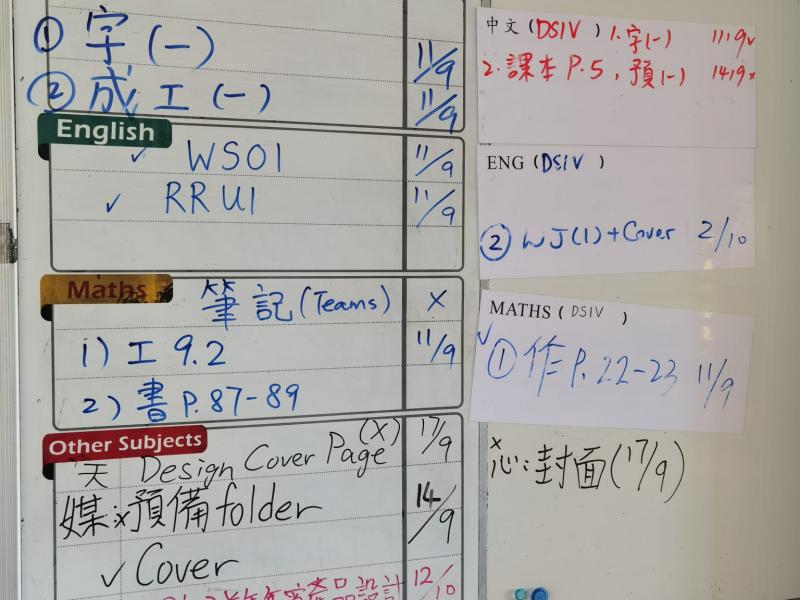 ① 字 (一) 11/9
② 成 工 (一) 11/9
English
✓ WS01 11/9
✓ RRU1 11/9
Maths
筆記 (Teams) X
1) 工 9.2 11/9
2) 書 P.87-89
Other Subjects
Design Cover Page (X) 17/9
媒:x預備folder 14/9
✓ Cover
產品設計 12/10
中文 (DSIV) 1.字(一) 11/9✓
2.課本 P.5, 預(一) 14/9x
ENG (DSIV)
② WJ(1)+Cover 2/10
MATHS (DSIV)
✓① 作 P.22-23 11/9
x
心:封面(17/9)